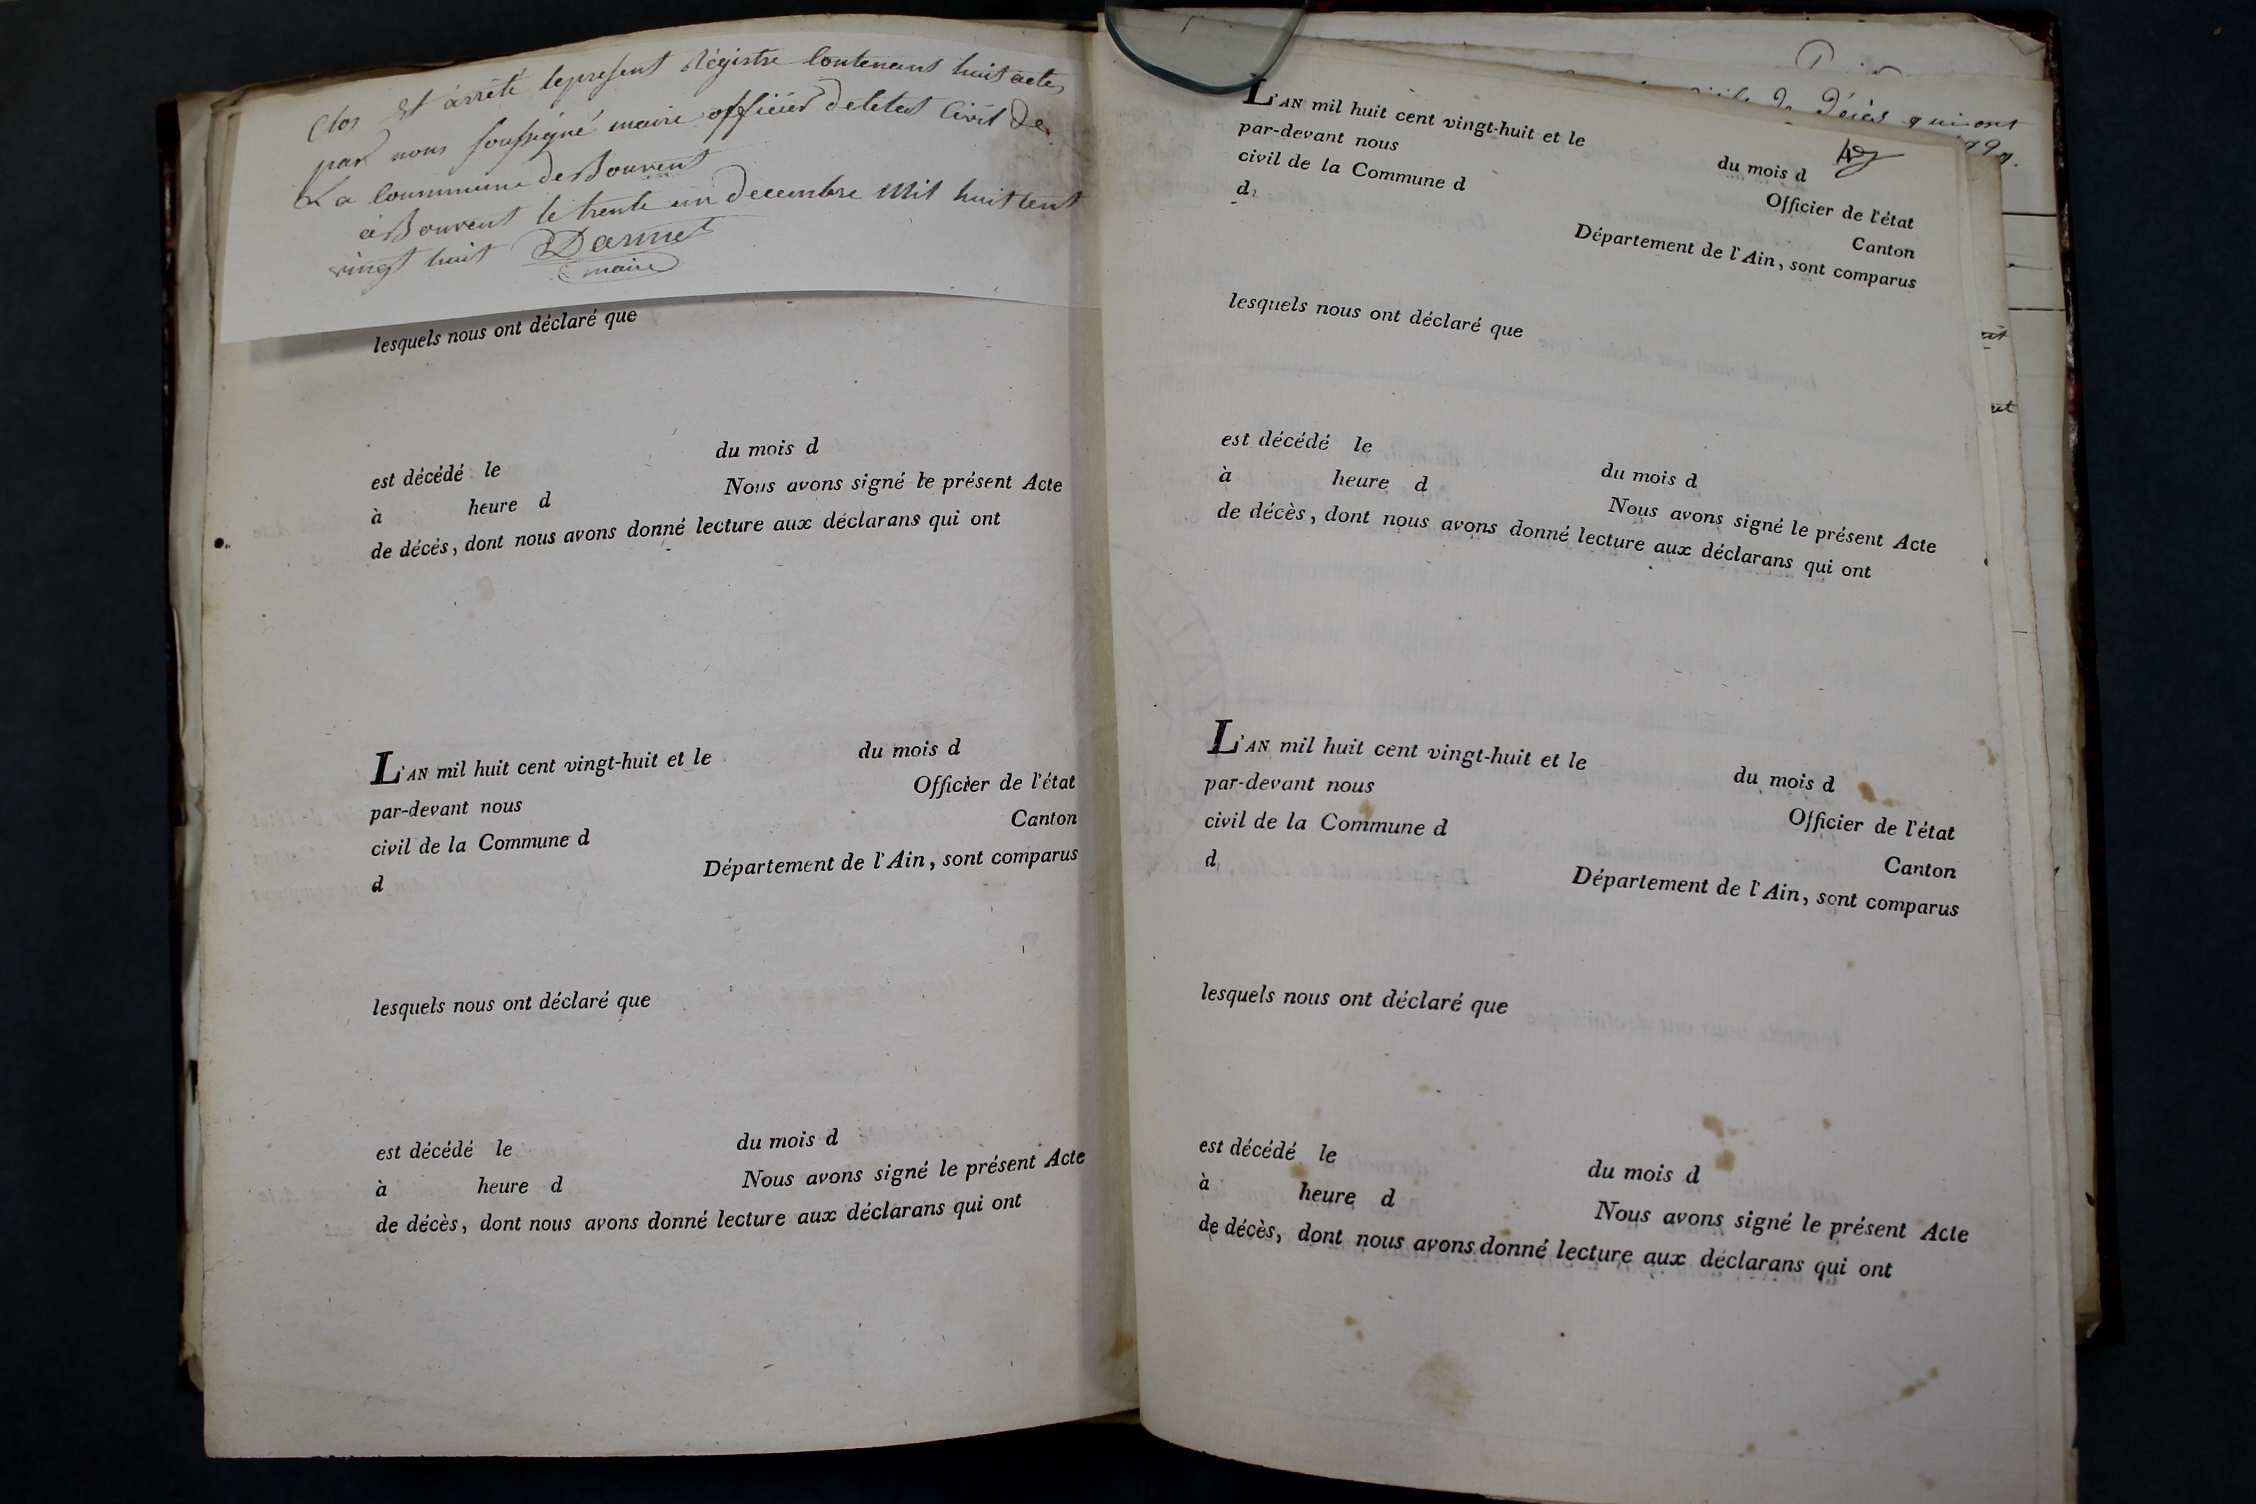 Clos et arrêté le present Régistre Contenant huit actes
par nous soussigné maire officier deletat Civil de
La Commune de Bouvent
à Bouvent le trente un decembre mil huit cent
vingt huit Darmet
maire
lesquels nous ont déclaré que
est décédé le du mois d
à heure d Nous avons signé le présent Acte
de décès, dont nous avons donné lecture aux déclarans qui ont
L'AN mil huit cent vingt-huit et le du mois d
par-devant nous Officier de l'état
civil de la Commune d Canton
d Département de l'Ain, sont comparus
lesquels nous ont déclaré que
est décédé le du mois d
à heure d Nous avons signé le présent Acte
de décès, dont nous avons donné lecture aux déclarans qui ont
L'AN mil huit cent vingt-huit et le du mois d
par-devant nous Officier de l'état
civil de la Commune d Canton
d Département de l'Ain, sont comparus
lesquels nous ont déclaré que
est décédé le du mois d
à heure d Nous avons signé le présent Acte
de décès, dont nous avons donné lecture aux déclarans qui ont
L'AN mil huit cent vingt-huit et le du mois d
par-devant nous Officier de l'état
civil de la Commune d Canton
d Département de l'Ain, sont comparus
lesquels nous ont déclaré que
est décédé le du mois d
à heure d Nous avons signé le présent Acte
de décès, dont nous avons donné lecture aux déclarans qui ont
de Décès qui ont